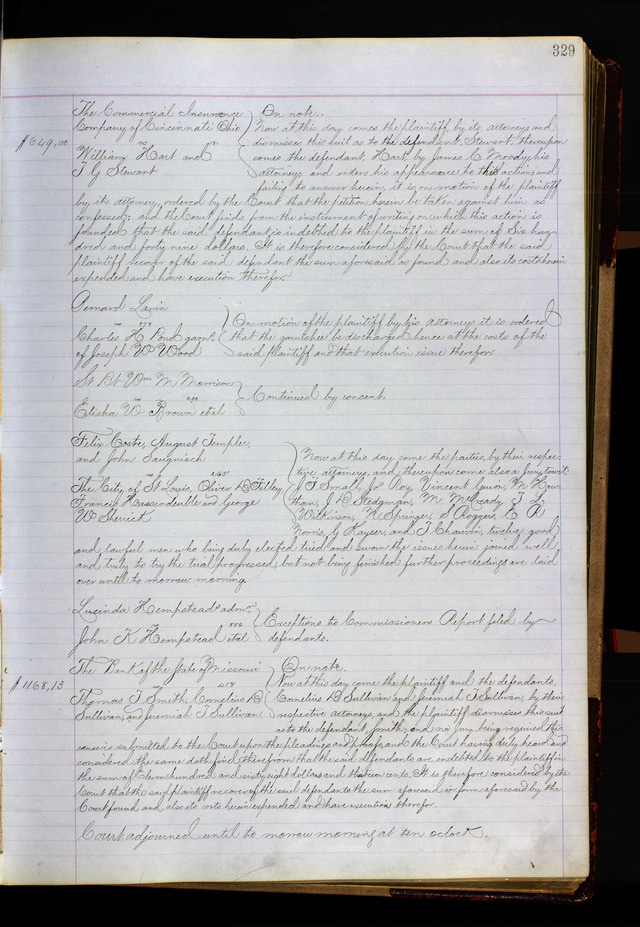 329
The Commercial Insurance } On note.
Company of Cincinnati Ohio } Now at this day comes the plaintiff, by its attorneys and
$649,00 vs dismisses this suit as to the defendant, Stewart, thereupon
William Hart and comes the defendant, Hart, by James C Moody, his
T G Stewart attorney, and enters his appearance to this action, and
failing to answer herein, it is on motion of the plaintiff
by its attorney, ordered by the Court that the petition herein be taken against him as
confessed: and the Court finds from the instrument of writing on which this action is
founded that the said defendant, is indebted to the plaintiff in the sum of Six hun-
dred and forty nine dollars. It is therefore considered by the Court that the said
plaintiff recover of the said defendant the sum aforesaid as found and also its costs herein
expended and have execution therefor.
Bernard Lavin
vs } On motion of the plaintiff by his attorney it is ordered
Charles H Pond garns. } that the garnishee be discharged hence at the costs of the
of Joseph W Wood } said plaintiff and that execution issue therefor.
St Bt Wm M Morrison
vs } Continued by consent.
Elisha W Brown et al
Felix Coste, August Templer,
and John Saugnisch } Now at this day come the parties, by their respec-
vs tive attorneys, and thereupon come also a Jury to wit:
The City of St Louis, Oliver D Filley J F Small, J L Roy, Vincent Guion, M Haw-
Francis Hassendeuble and George than, J D Stedgman, M McCready T L
W Sherick Wilkinson, N Springer, S Roggers E R
Norris, G Kayser, and T Chauvin, twelve good
and lawful men who being duly elected tried and sworn the issues herein joined well
and truly to try the trial progressed but not being finished further proceedings are laid
over until to morrow morning.
Lucinda Hempstead's admr.
vs } Exceptions to Commissioners Report filed by
John K Hempstead et al } defendants.
The Bank of the State of Missouri } On note.
$1168,13 vs 418 Now at this day come the plaintiff and the defendants,
Thomas J Smith, Cornelius B Cornelius B Sullivan and Jeremiah T Sullivan, by their
Sullivan, and Jeremiah T Sullivan respective attorneys, and the plaintiff dismisses this suit
as to the defendant Smith; and no Jury being required this
cause is submitted to the Court upon the pleadings and proofs, and the Court having duly heard and
considered the same doth find therefrom that the said defendants are indebted to the plaintiff in
the sum of Eleven hundred and sixty eight dollars and thirteen cents. It is therefore considered by the
Court that the said plaintiff recover of the said defendants the sum aforesaid in form aforesaid by the
Court found and also its costs herein expended and have execution therefor.
Court adjourned until to morrow morning at ten oclock.